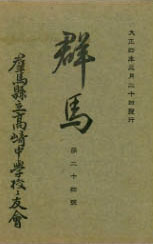 大正四年三月二十四日發行
群馬
第二十四號
群馬縣立高崎中學校々友會